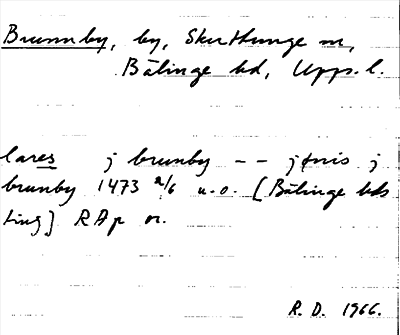 Brunnby, by, Skuttunge sn,
Bälinge hd, Upps. l.
lares j brunby -- jönis j
brunby 1473 2/6 u.o. [Bälinge hds
ting] RAp or.
R. D. 1966.